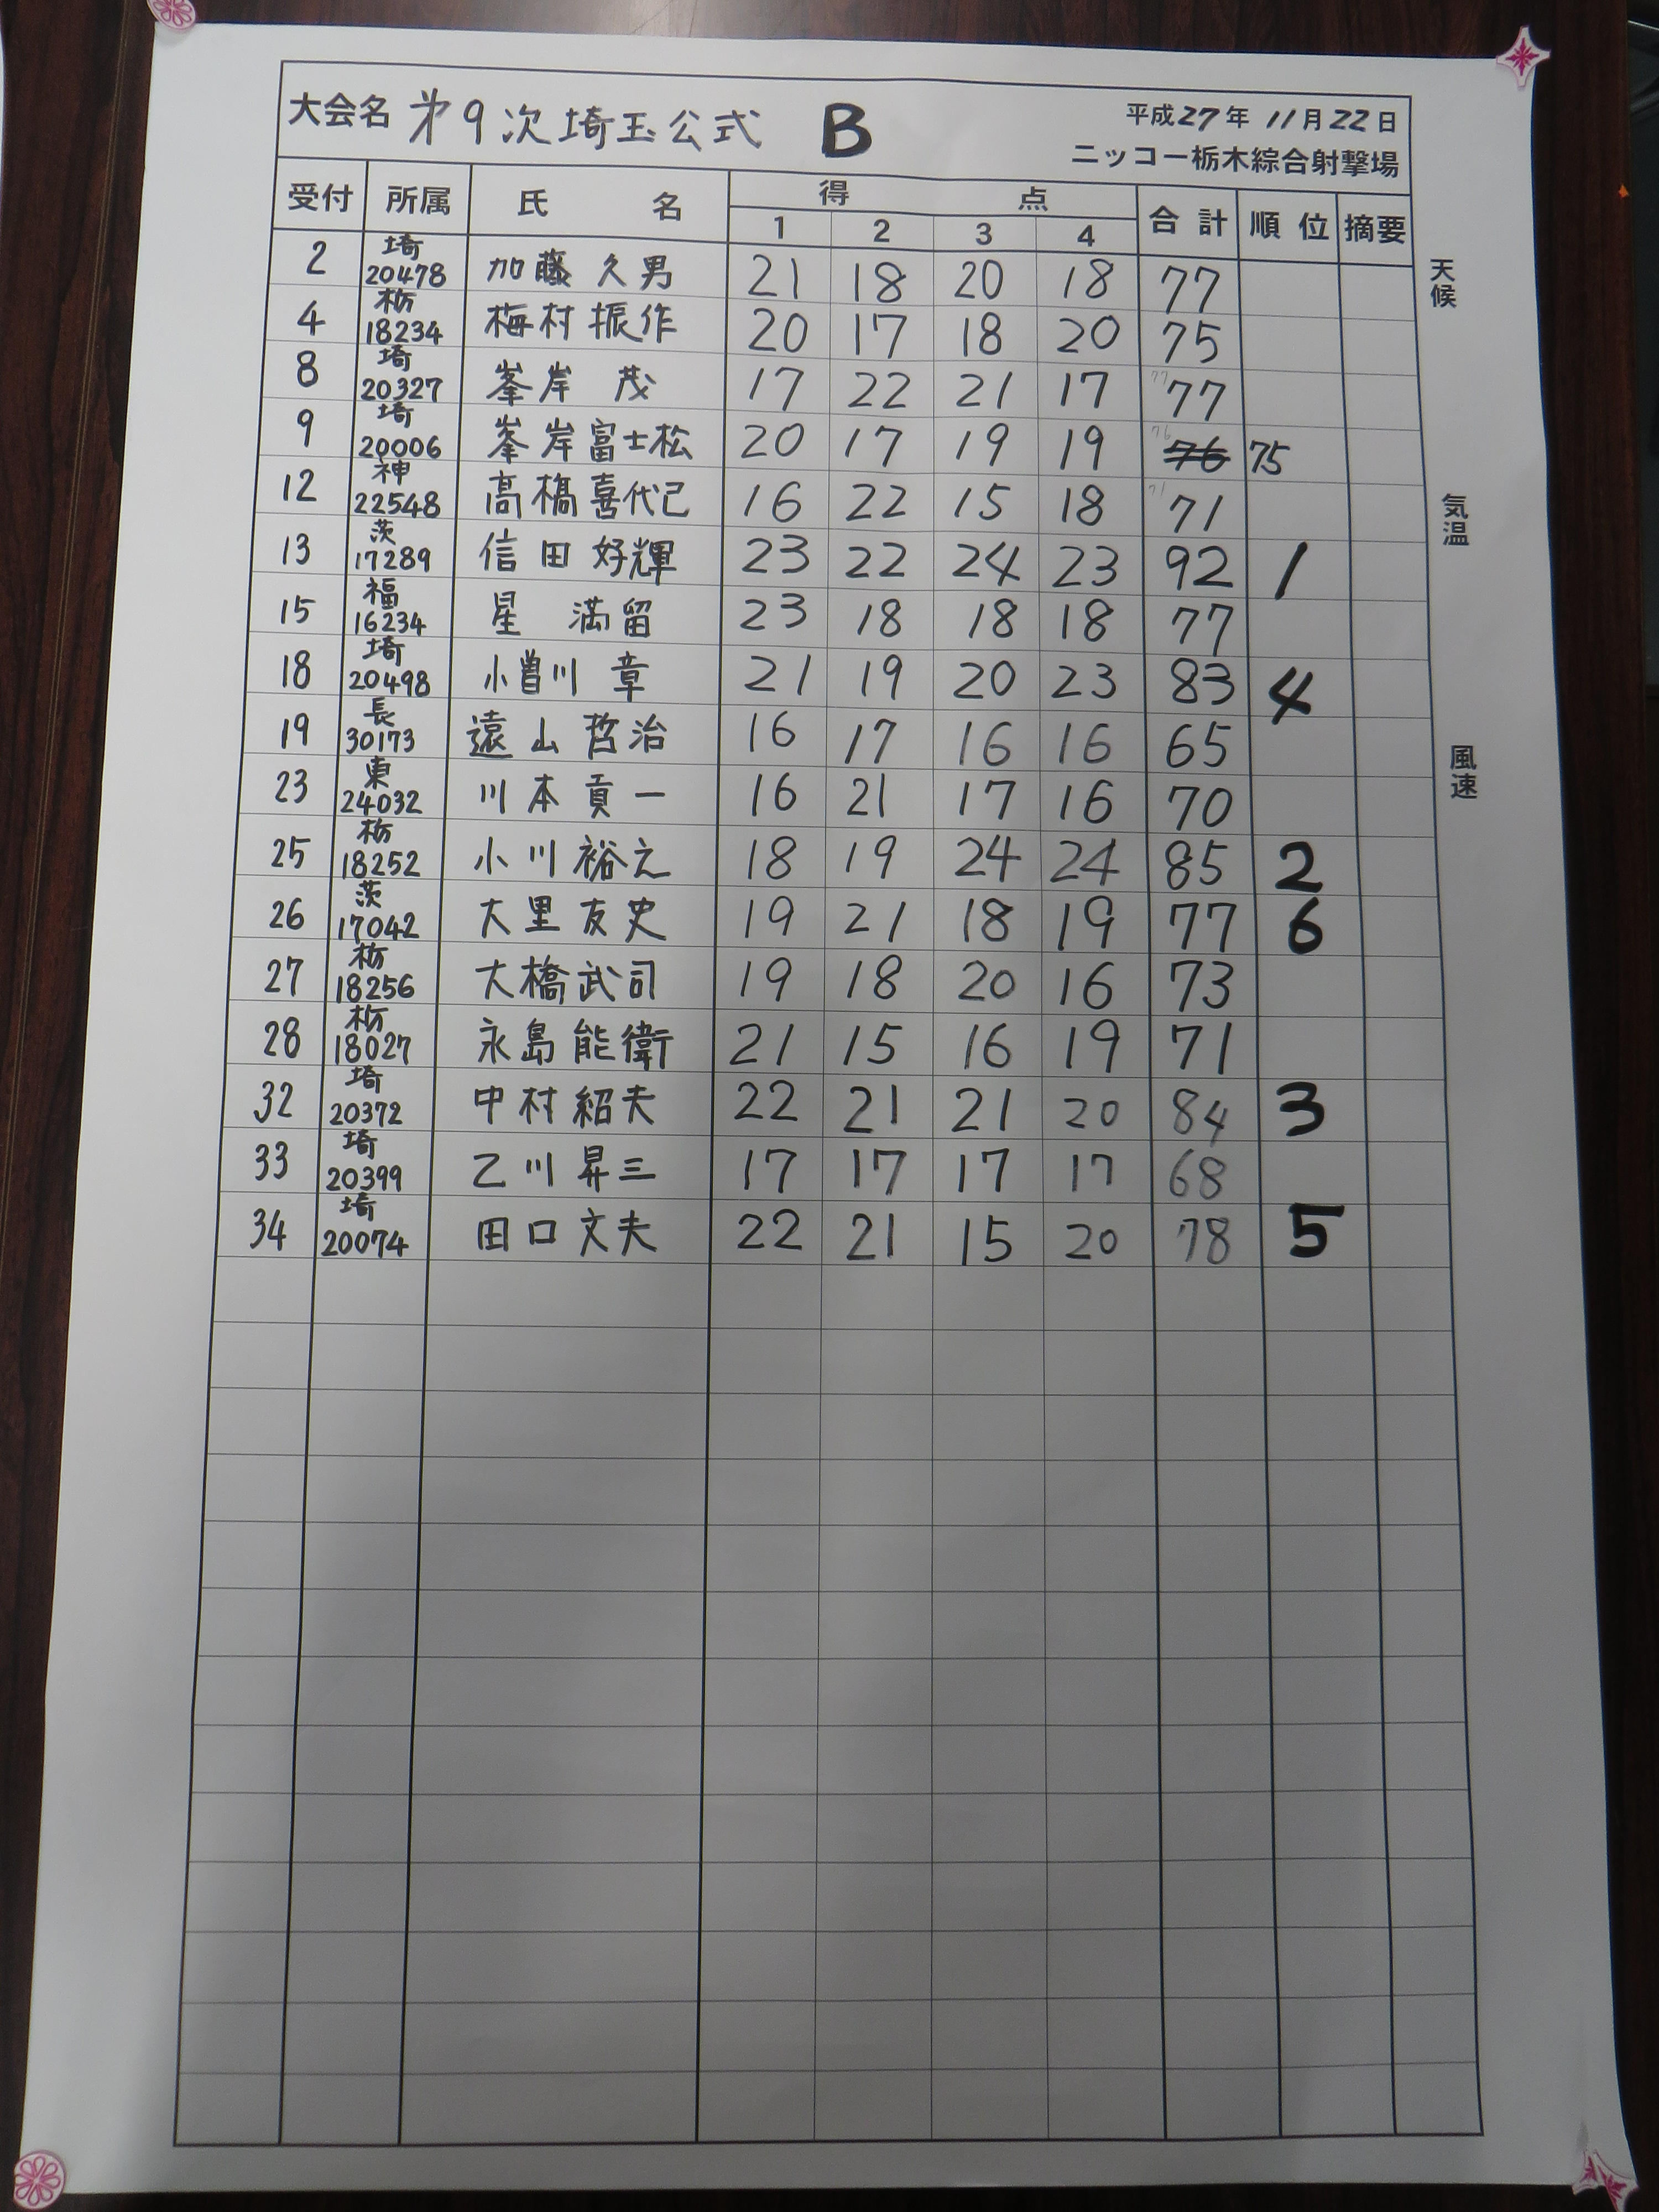 大会名 第9次埼玉公式 B 平成27年 11月22日
ニッコー栃木綜合射撃場
受付 所属 氏名 得点 合計 順位 摘要
1 2 3 4
2 埼 20478 加藤久男 21 18 20 18 77
4 栃 18234 梅村振作 20 17 18 20 75
8 埼 20327 峯岸 茂 17 22 21 17 77 77
9 埼 20006 峯岸富士松 20 17 19 19 76 76 75
12 神 22548 高橋喜代己 16 22 15 18 71 71
13 茨 17289 信田好輝 23 22 24 23 92 1
15 福 16234 星 満留 23 18 18 18 77
18 埼 20498 小曽川 章 21 19 20 23 83 4
19 長 30173 遠山哲治 16 17 16 16 65
23 東 24032 川本貢一 16 21 17 16 70
25 栃 18252 小川裕之 18 19 24 24 85 2
26 茨 17042 大里友史 19 21 18 19 77 6
27 栃 18256 大橋武司 19 18 20 16 73
28 栃 18027 永島能衛 21 15 16 19 71
32 埼 20372 中村紹夫 22 21 21 20 84 3
33 埼 20399 乙川昇三 17 17 17 17 68
34 埼 20074 田口文夫 22 21 15 20 78 5
天候
気温
風速